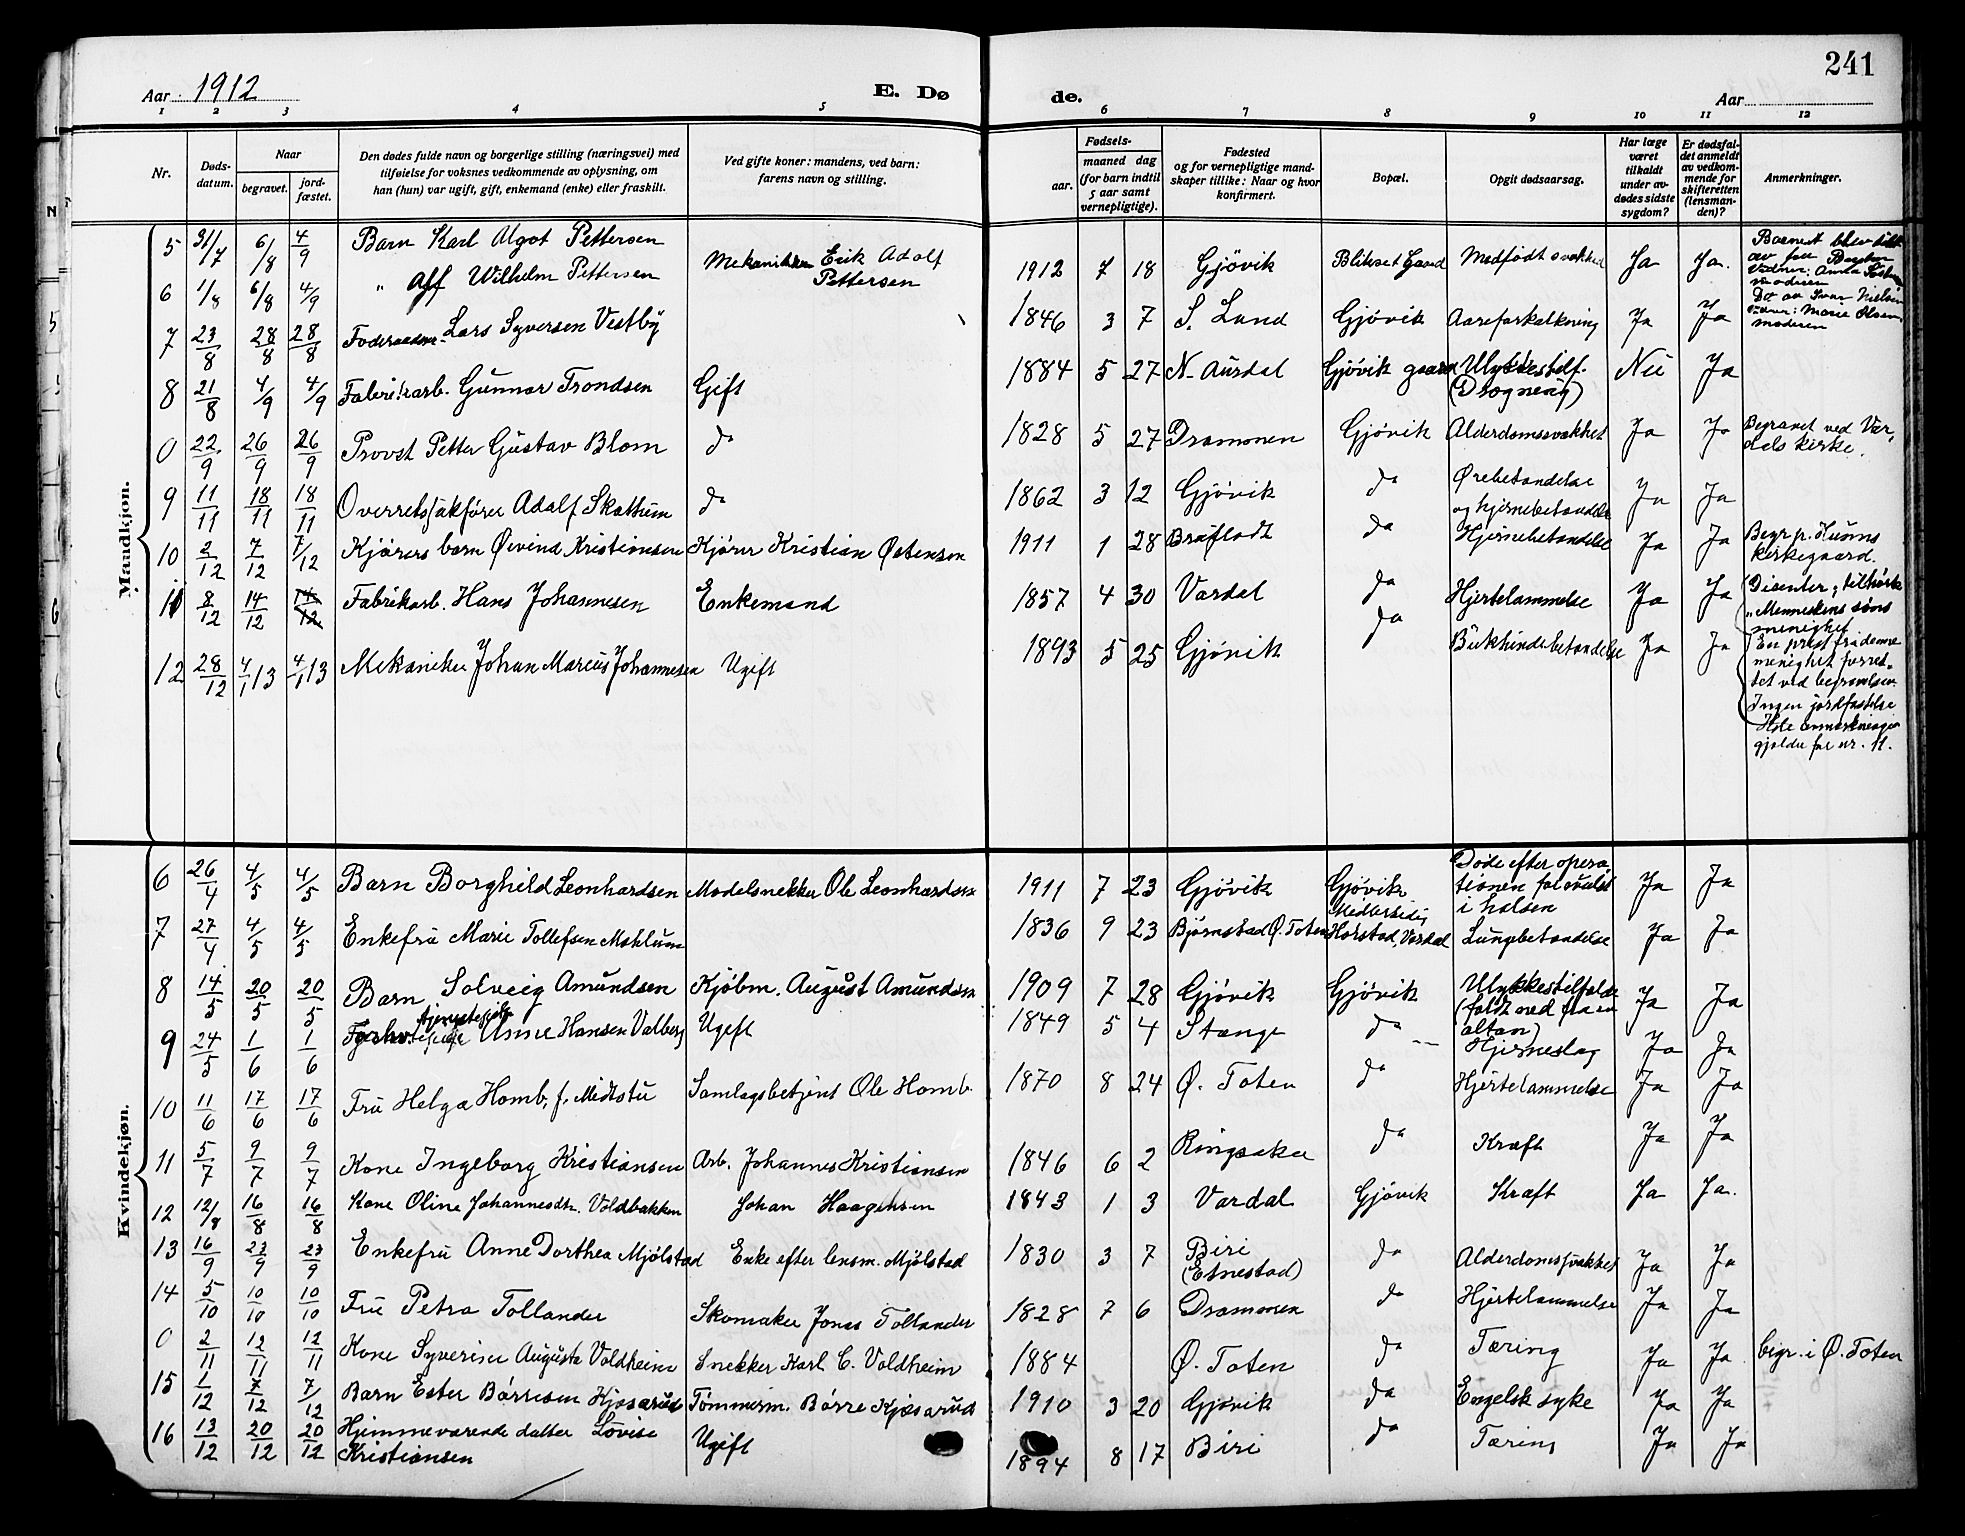 241
Aar 1912 E. Dø de. Aar
1 2 3 4 5 6 7 8 9 10 11 12
Nr. Døds-datum. Naar begravet. jord-fæstet. Den dødes fulde navn og borgerlige stilling (næringsvei) med tilføielse for voksnes vedkommende av oplysning, om han (hun) var ugift, gift, enkemand (enke) eller fraskilt. Ved gifte koner: mandens, ved barn: farens navn og stilling. Fødsels- aar. maaned dag (for barn indtil 5 aar samt vernepligtige). Fødested og for vernepligtige mandskaper tillike: Naar og hvor konfirmert. Bopæl. Opgit dødsaarsag. Har læge været tilkaldt under avdødes sidste sygdom? Er dødsfaldet anmeldt av vedkommende for skifteretten (lensmanden)? Anmerkninger.
Mandkjøn.
5 31/7 6/8 4/9 Barn Karl Algot Pettersen Mekaniker Erik Adolf Pettersen 1912 7 18 Gjøvik Blikset Gaard Medfødt svakhed Ja Ja. Barnet blev
6 1/8 6/8 4/9 " Alf Wilhelm Pettersen
moderen
7 23/8 28/8 28/8 Føderaadsm. Lars Syversen Vestby 1846 3 7 S. Land Gjøvik Aareforkalkning Ja Ja
8 21/8 4/9 4/9 Fabrikarb. Gunnar Trondsen Gift 1884 5 27 N. Aurdal Gjøvik gaard Ulykkestilf. (Drogning) Nei Ja
0 22/9 26/9 26/9 Provst Petter Gustav Blom do 1828 5 27 Drammen Gjøvik Alderdomssvakhet Ja Ja Begravet ved Vardals kirke.
9 11/11 18/11 18/11 Overretssakfører Adolf Skattum do 1862 3 12 Gjøvik do Ørebetændelse og hjernebetændelse Ja Ja
10 2/12 7/12 7/12 Kjørers barn Øivind Kristiansen Kjører Kristian Østensen 1911 1 28 Bråflodt do Hjernebetændelse Ja Ja Begr. p. Hunns kirkegaard.
11 8/12 14/12 14/12 Fabrikarb. Hans Johannesen Enkemand 1857 4 30 Vardal do Hjertelammelse Ja Ja Disenter, tilhørte "Menneskens søns menighet
12 28/12 4/1 13 4/1 13 Mekaniker Johan Marius Johannesen Ugift 1893 5 25 Gjøvik do Bukhindebetændelse Ja Ja En prest fra denne menighet forrettet ved begravelsen. Ingen jordfæstelse Hele anmerkningen gjælder for nr. 11.
Kvindekjøn.
6 26/4 4/5 4/5 Barn Borghild Leonhardsen Modelsnekker Ole Leonhardsen 1911 7 23 Gjøvik Gjøvik Døde efter operationen for svulst i halsen Ja Ja
7 27/4 4/5 4/5 Enkefru Marie Tollefsen Mæhlum 1836 9 23 Bjørnstad Ø. Toten Harstad, Vardal Lungebetændelse Ja Ja
8 14/5 20/5 20/5 Barn Solveig Amundsen Kjøbm. August Amundsen 1909 7 28 Gjøvik Gjøvik Ulykkestilfælde (faldt ned fra en altan) Ja Ja
9 24/5 1/6 1/6 Anne Hansen Valberg Ugift 1849 5 4 Stange do Hjerneslag Ja Ja
10 11/6 17/6 17/6 Fru Helga Homb, f. Midtstu Samlagsbetjent Ole Homb. 1870 8 24 Ø. Toten do Hjertelammelse Ja Ja
11 5/7 9/7 9/7 Kone Ingeborg Kristiansen Arb. Johannes Kristiansen 1846 6 2 Ringsaker do Kræft Ja Ja
12 12/8 16/8 16/8 Kone Oline Johannesdtr. Voldbakken Johan Haagensen 1843 1 3 Vardal Gjøvik Kræft Ja Ja.
13 16/9 23/9 23/9 Enkefru Anne Dorthea Mjølstad Enke efter lensm. Mjølstad 1830 3 7 Biri (Etnestad) do Alderdomssvakhet Ja Ja
14 5/10 10/10 10/10 Fru Petra Tollander Skomaker Jonas Tollander 1828 7 6 Drammen do Hjertelammelse Ja Ja
0 2/11 12/11 12/11 Kone Syverine Augusta Voldheim Snekker Karl C. Voldheim 1884 Ø. Toten do Tæring Ja Ja begr. i Ø. Toten
15 1/12 7/12 7/12 Barn Ester Børresen Kjøsarud Tømmerm. Børre Kjøsarud 1910 3 20 Gjøvik do Engelsk syke Ja Ja
16 13/12 20/12 20/12 Hjemmeværende datter Lovise Kristiansen Ugift 1894 8 17 Biri do Tæring Ja Ja